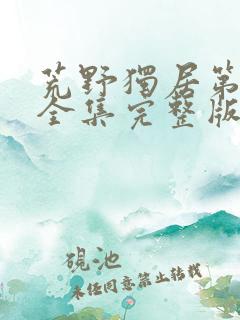 荒野獨居第
全集完整版
硯池
未經同意禁止轉載